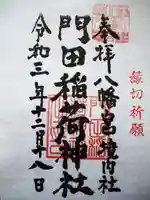 縁切祈願
奉拝
八幡宮境内社
門田稲荷神社
令和三年十二月十八日